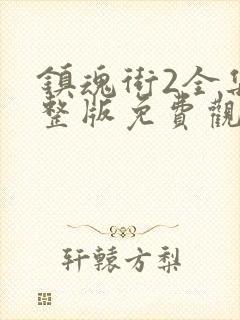 鎮魂街2全集
整版免費觀
轩辕方梨